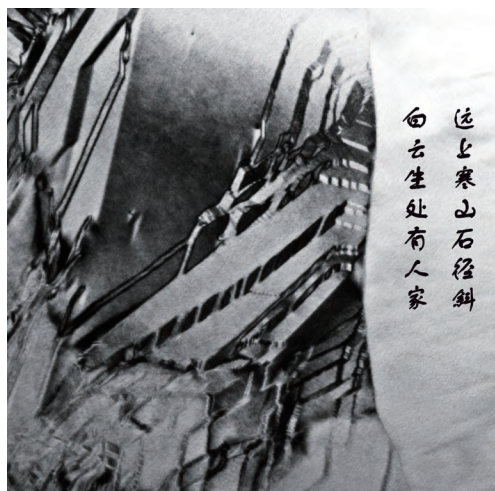 远上寒山石径斜
白云生处有人家